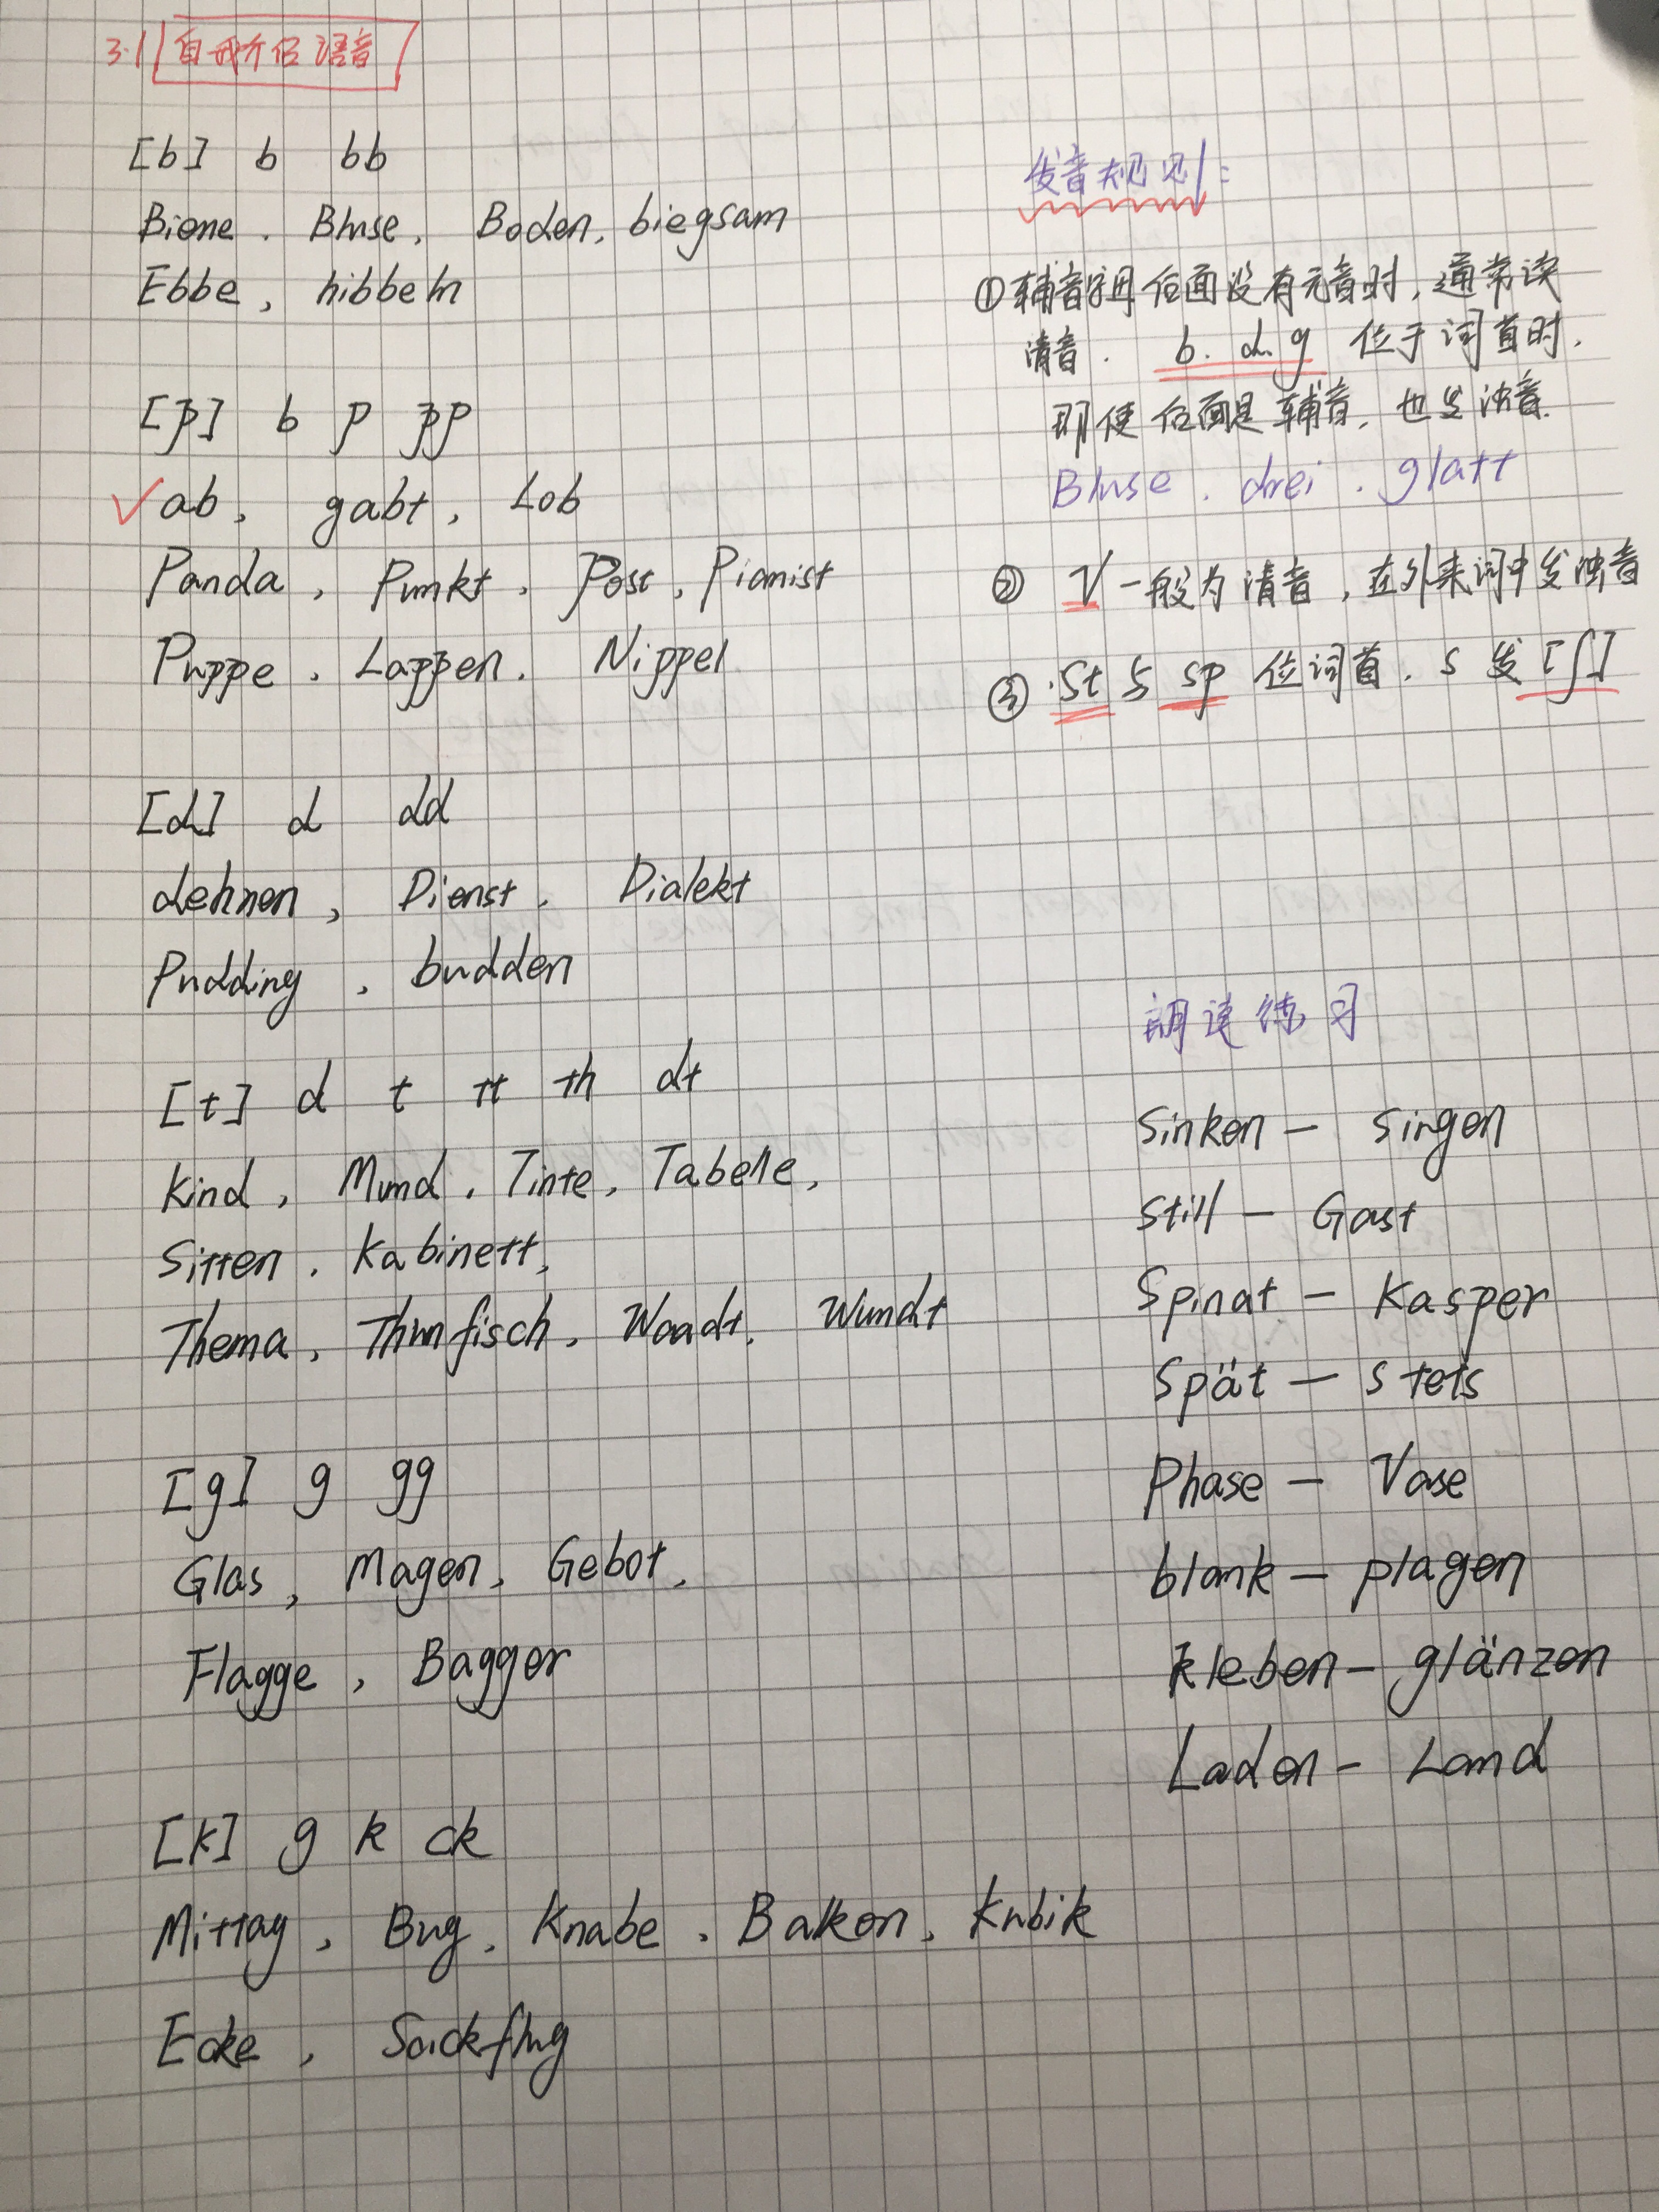 3.1 自我介绍语音
[b] b bb
Biene. Bluse, Boden, biegsam
Ebbe, hibbeln
[p] b p pp
✓ab, gabt, Lob
Panda, Punkt, Post, Pianist
Puppe, Lappen. Nippel
[d] d dd
dehnen, Dienst. Dialekt
Pudding, buddeln
[t] d t tt th dt
Kind, Mund, Tinte, Tabelle,
Sitten, Kabinett,
Thema, Thunfisch, Waadt, Wundt
[g] g gg
Glas, Magen, Gebot,
Flagge, Bagger
[k] g k ck
Mittag, Bug, Knabe, Balkon, Kubik
Ecke, Sackflug
发音规则:
①辅音字母后面没有元音时,通常读
清音. b. d. g 位于词首时,
即使后面是辅音,也发浊音.
Bluse. drei. glatt
② V一般为清音,在外来词中发浊音
③ St与sp 位词首. s 发[ʃ]
朗读练习
Sinken — singen
still — Gast
Spinat — Kasper
Spät — stets
Phase — Vase
blank — plagen
kleben — glänzen
Laden — Land